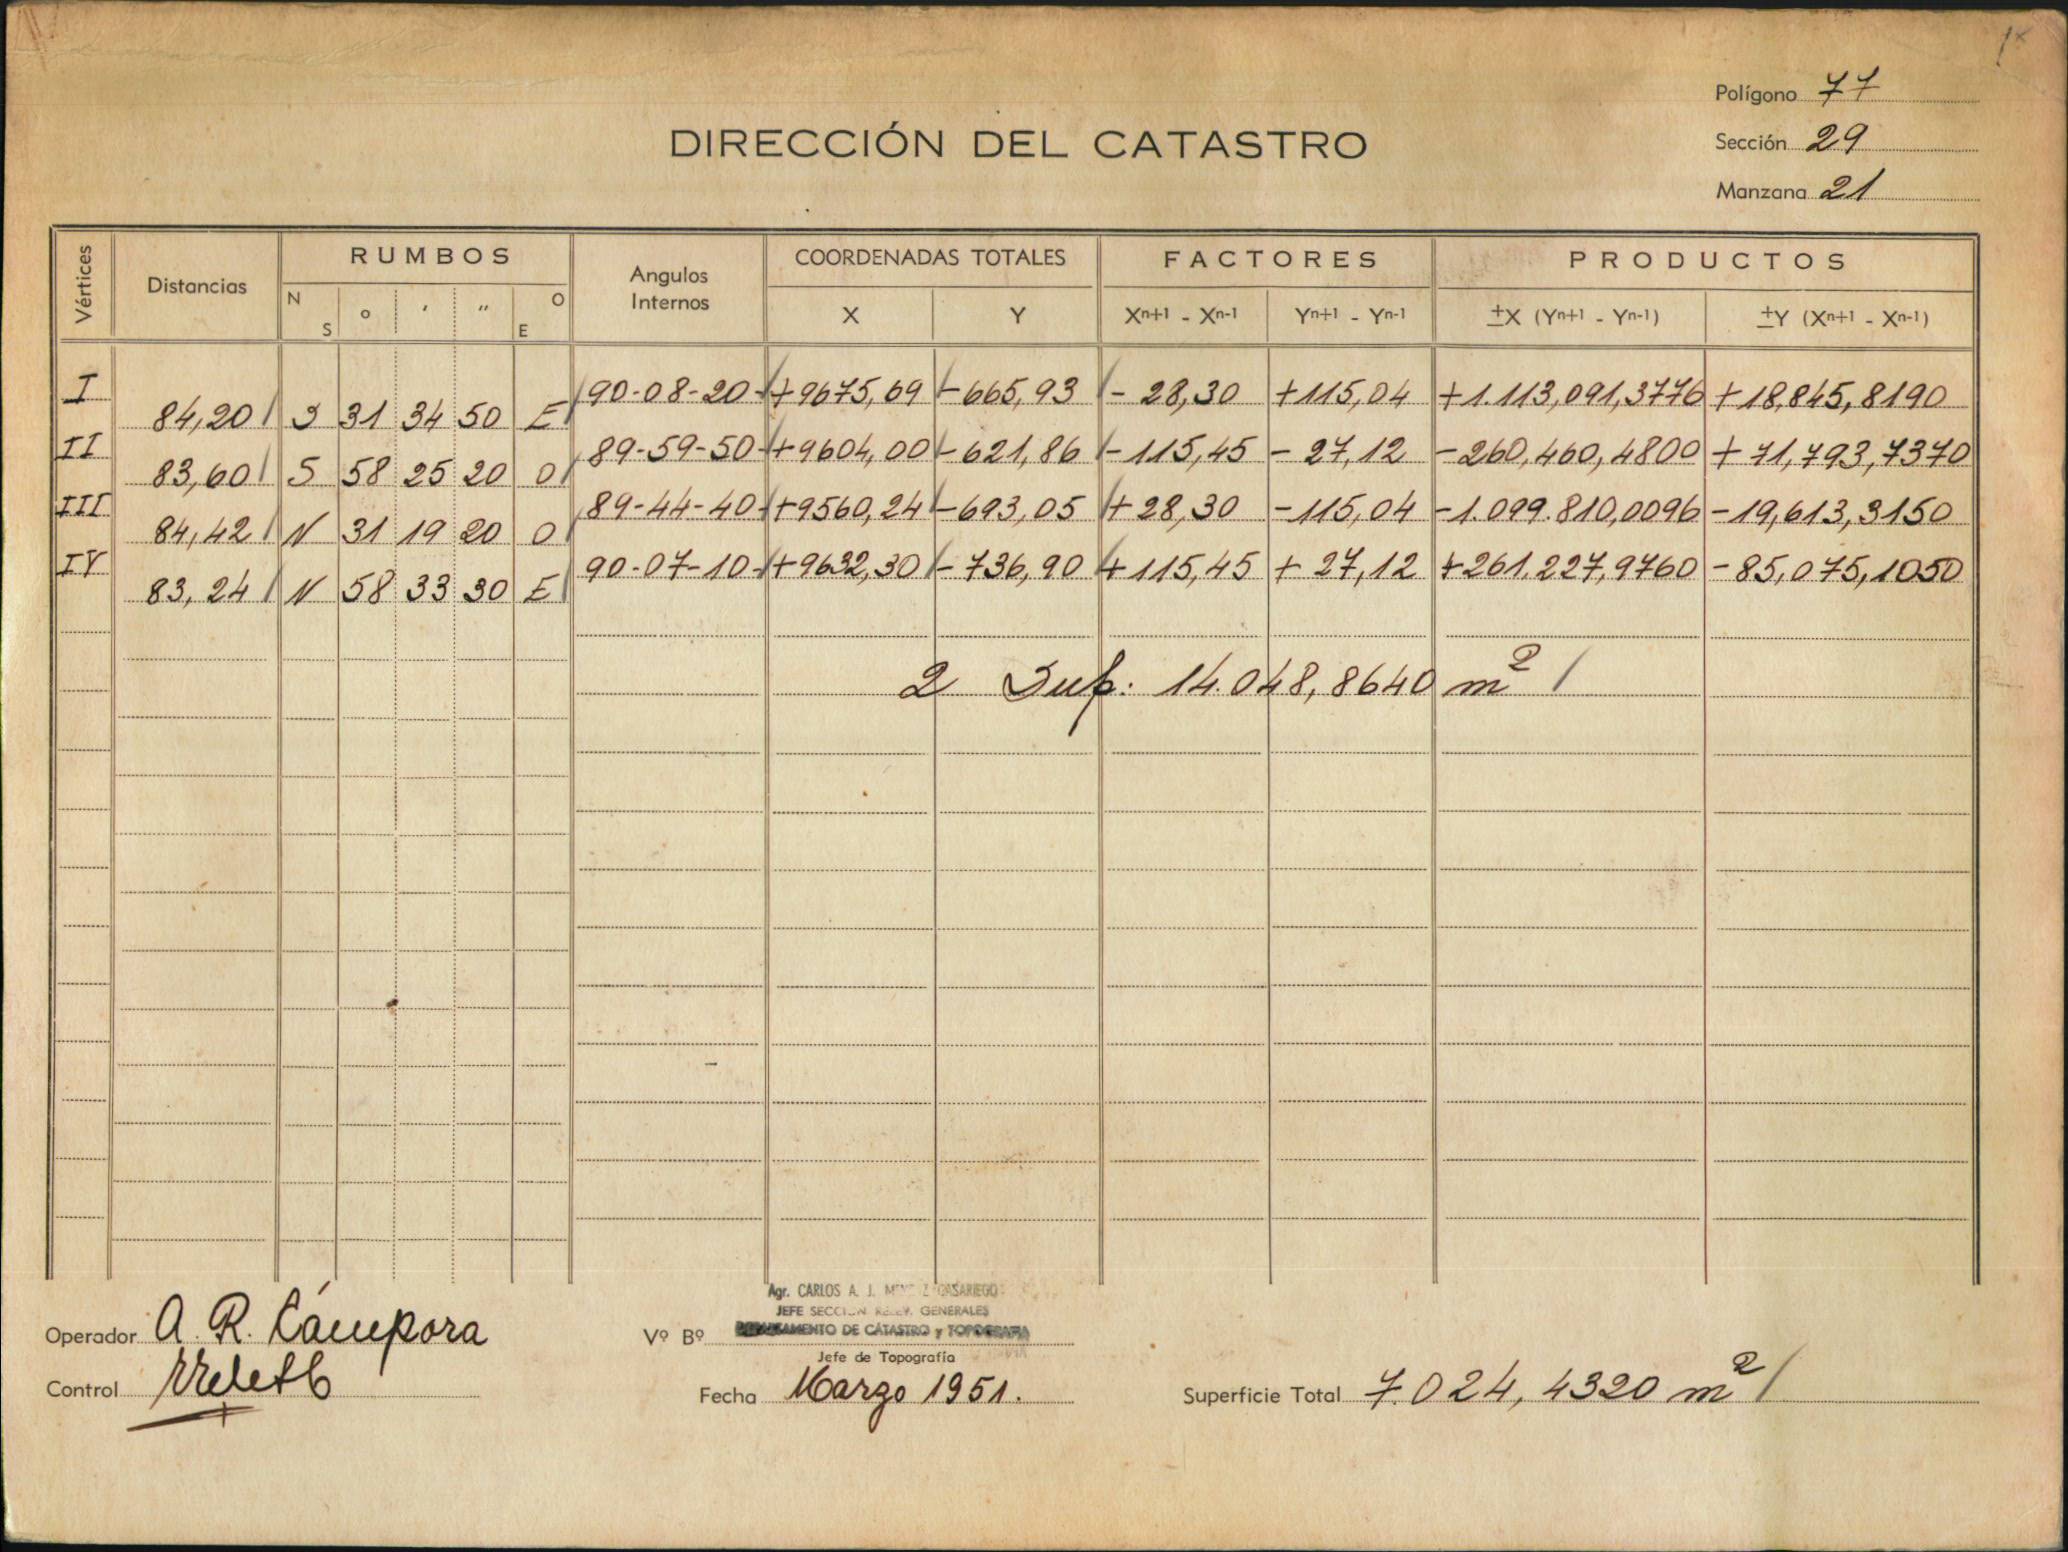 Polígono 77
DIRECCIÓN DEL CATASTRO
Sección 29
Manzana 21
Vértices Distancias RUMBOS Angulos Internos COORDENADAS TOTALES FACTORES PRODUCTOS
N S ° ' " O E X Y Xn+1 - Xn-1 Yn+1 - Yn-1 ±X (Yn+1 - Yn-1) ±Y (Xn+1 - Xn-1)
I 90-08-20 +9675,69 -665,93 - 28,30 +115,04 +1.113,091,3776 +18,845,8190
84,20 S 31 34 50 E
II 89-59-50 +9604,00 -621,86 -115,45 - 27,12 -260,460,4800 + 71,793,7370
83,60 S 58 25 20 O
III 89-44-40 +9560,24 -693,05 +28,30 -115,04 -1.099.810,0096 -19,613,3150
84,42 N 31 19 20 O
IV 90-07-10 +9632,30 -736,90 +115,45 + 27,12 +261.227,9760 -85,075,1050
83,24 N 58 33 30 E
2 Sup. 14.048,8640 m²
Agr. CARLOS A. J. CASARIEGO
JEFE SECCION RELEV. GENERALES
Operador A. R. Cámpora Vº Bº DEPARTAMENTO DE CATASTRO y TOPOGRAFIA
Jefe de Topografía
Control
Fecha Marzo 1951. Superficie Total 7.024,4320 m²